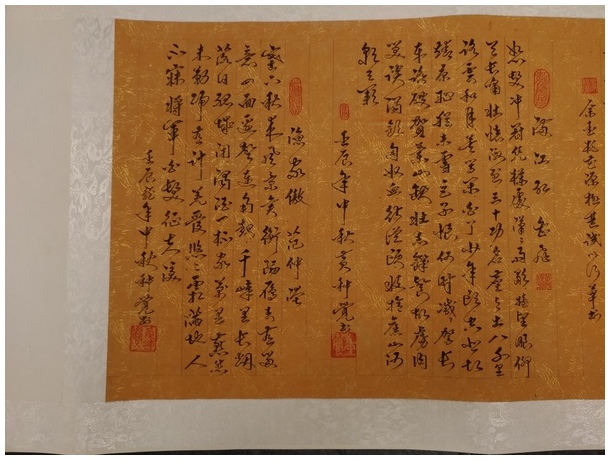 滿江紅 岳飛
怒髮冲冠凭欄處瀟瀟雨歇擡望眼仰
天長嘯壯懷激烈三十功名塵與土八千里
路雲和月莫等閒白了少年頭空悲切
靖康恥猶未雪臣子恨何時滅駕長
車踏破賀蘭山缺壯志飢餐胡虜肉
笑談渴飲匈奴血待從頭收拾舊山河
朝天闕
壬辰年中秋黃种覺書
漁家傲 范仲淹
塞下秋來風景異衡陽雁去無留
意四面邊聲連角起千嶂裏長烟
落日孤城閉濁酒一杯家萬里燕然
未勒歸無計羌管悠悠霜滿地人
不寐將軍白髮征夫淚
壬辰年中秋种覺書